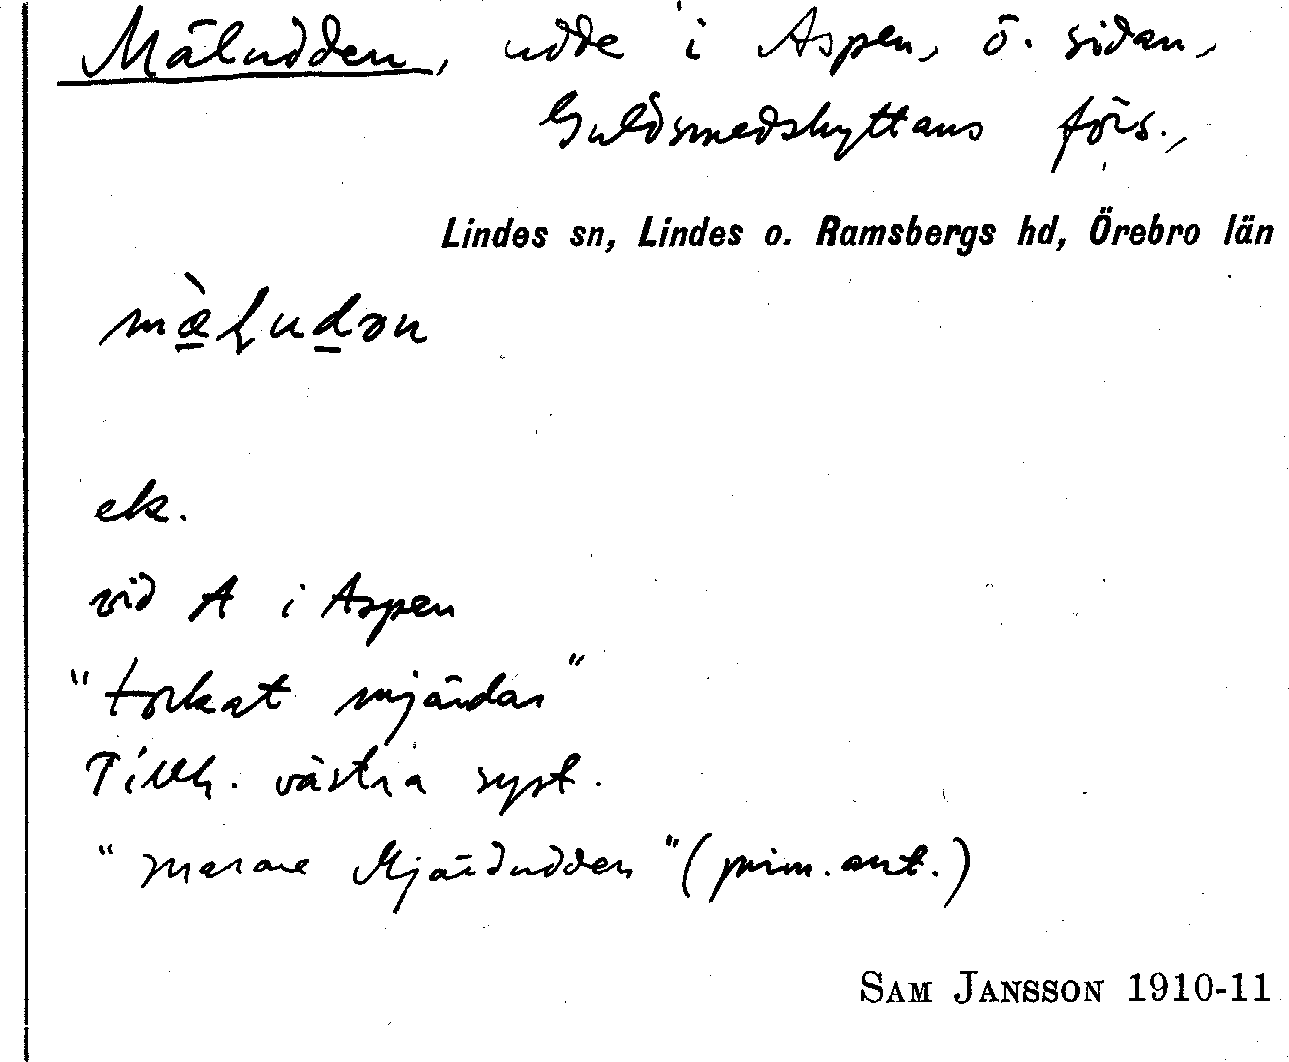 Mäludden, udde i Aspen, ö. sidan,
Guldsmedshyttans förs.,
Lindes sn, Lindes o. Ramsbergs hd, Örebro län
mæ̀ɽudən
ek.
vid A i Aspen
"torkat mjärdar"
Tillh. västra syst.
"snarare Mjärdudden" (prim. ant.)
SAM JANSSON 1910-11